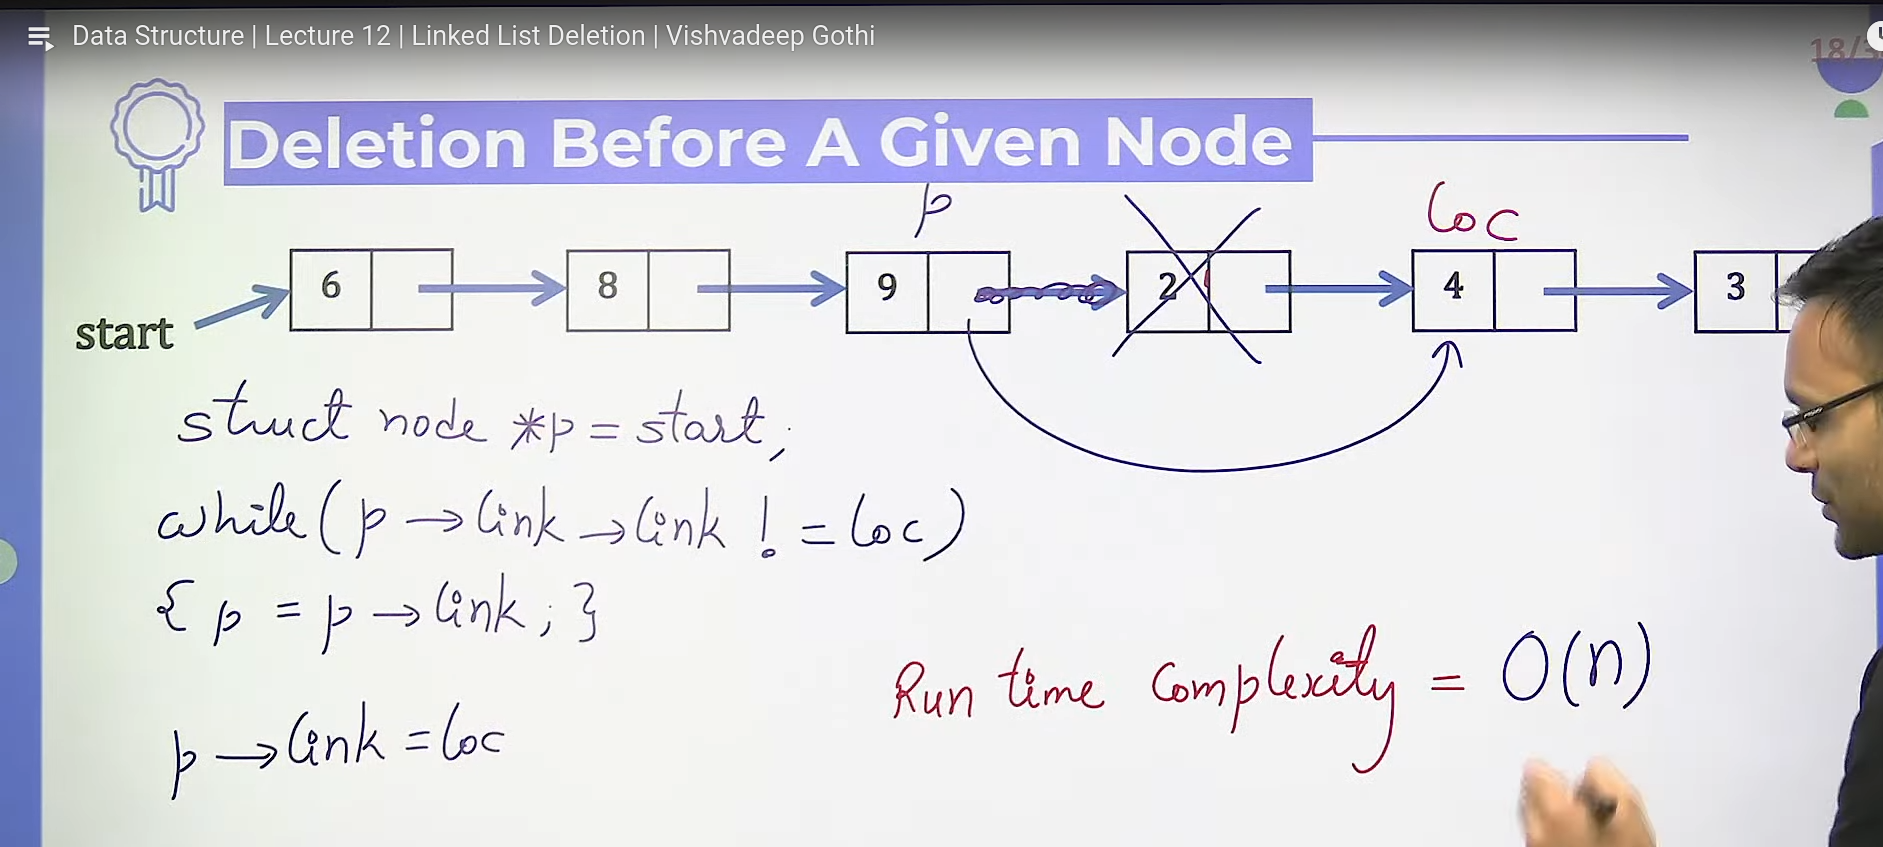 Data Structure | Lecture 12 | Linked List Deletion | Vishvadeep Gothi
Deletion Before A Given Node
p
Loc
6
8
9
2
4
3
start
struct node *p = start;
while (p → link → link != Loc)
{ p = p → link; }
Run time Complexity = O(n)
p → link = Loc